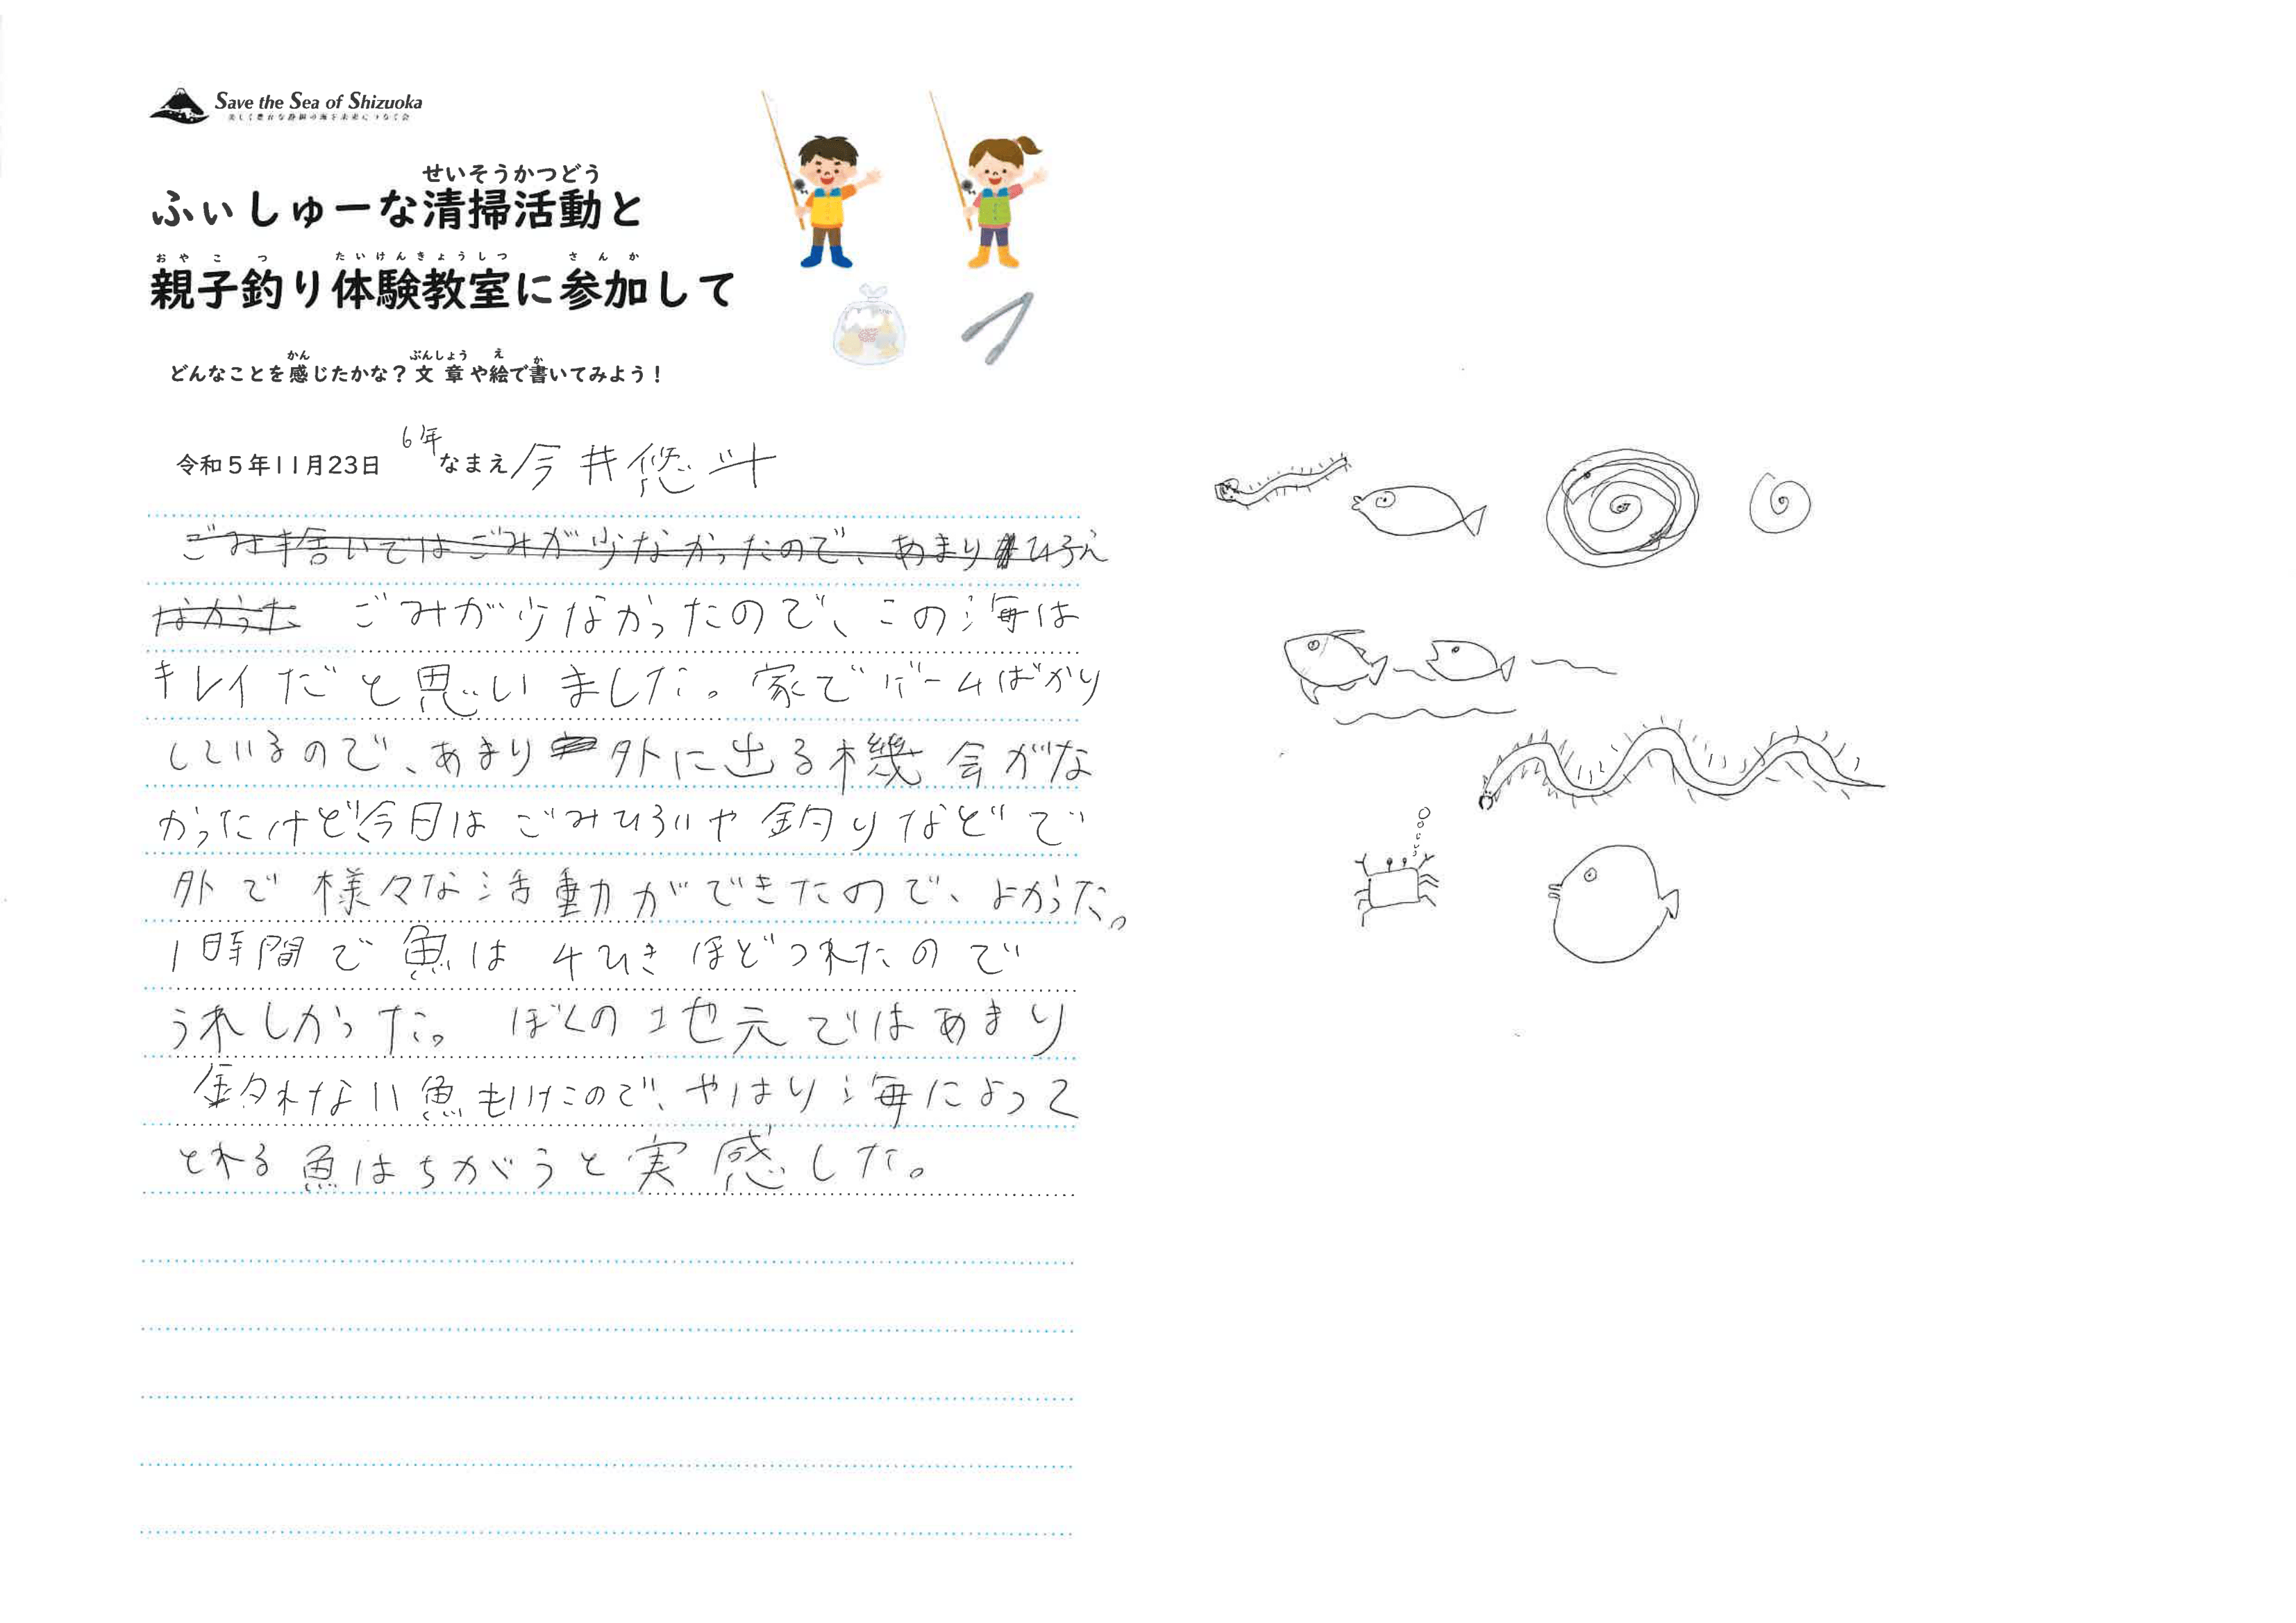 Save the Sea of Shizuoka
美しく豊かな静岡の海を未来につなぐ会
せいそうかつどう
ふぃしゅーな清掃活動と
おやこつ たいけんきょうしつ さんか
親子釣り体験教室に参加して
かん ぶんしょう え か
どんなことを感じたかな？文章や絵で書いてみよう！
6年
令和5年11月23日 なまえ 今井悠斗
ごみ捨いではごみが少なかったので、あまりひろえ
なかった ごみが少なかったので、この海は
キレイだと思いました。家でゲームばかり
しているので、あまり外に出る機会がな
かったけど今日はごみひろいや釣りなどで
外で様々な活動ができたので、よかった。
1時間で魚は4ひきほどつれたので
うれしかった。ぼくの地元ではあまり
釣れない魚もいたので、やはり海によって
とれる魚はちがうと実感した。